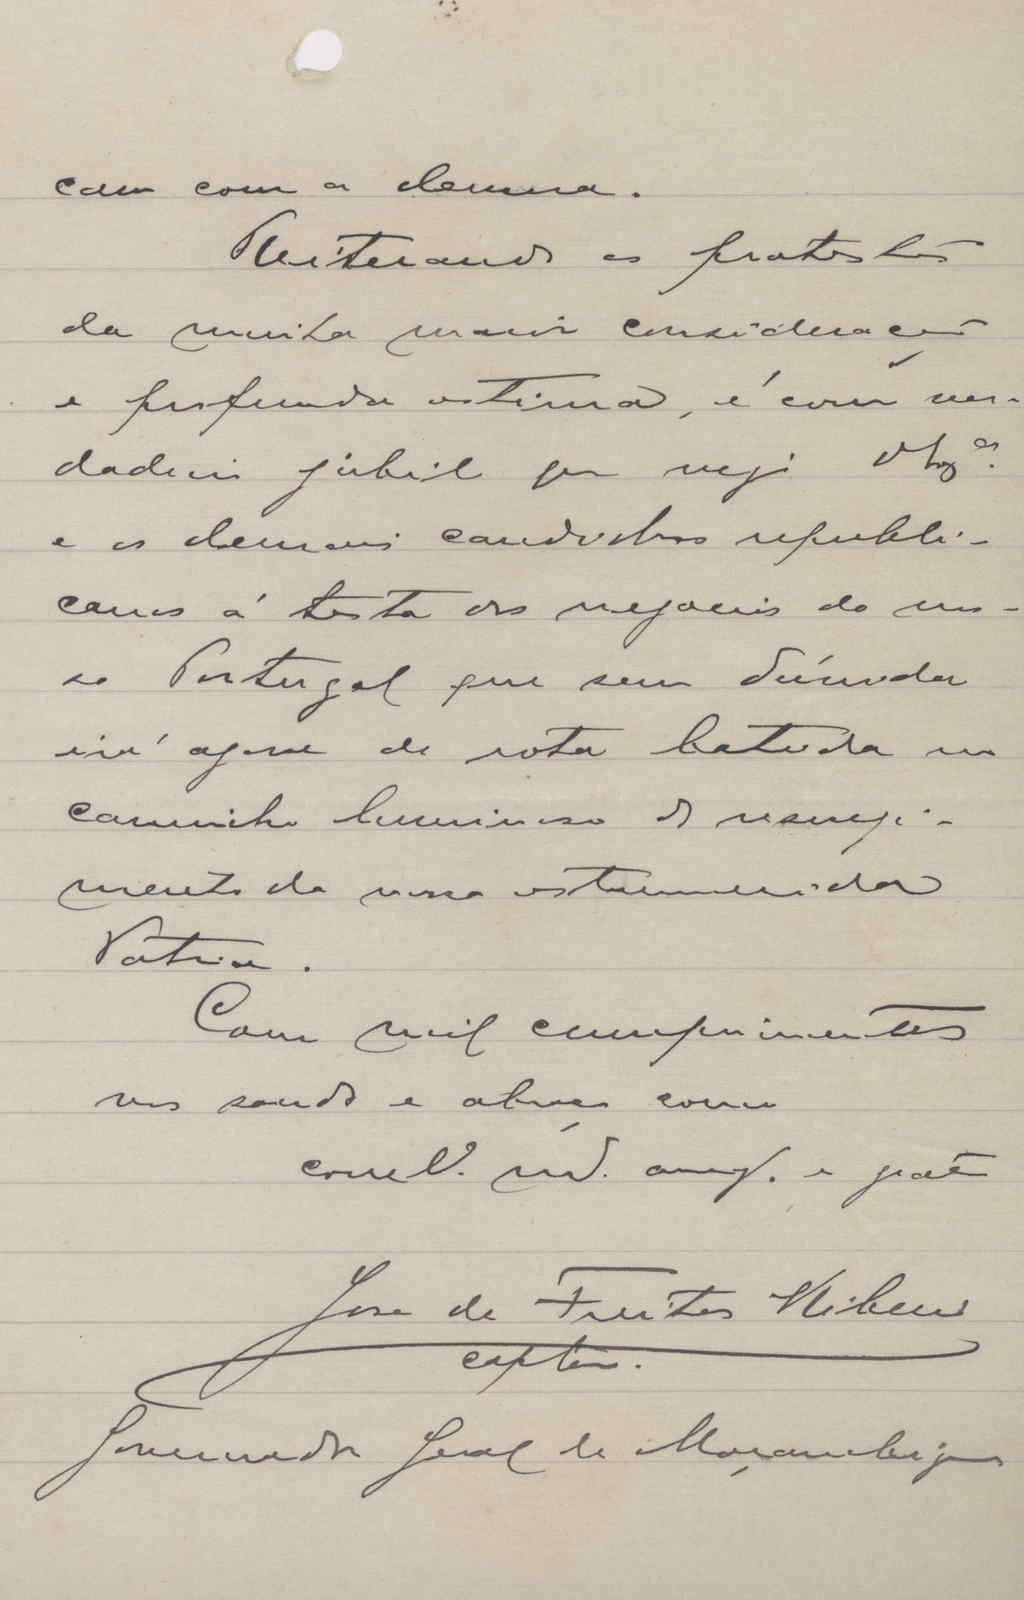 cam com a demora.
Reiterando os protestos
da muita maior consideração
e profunda estima, é com ver-
dadeiro jubilo que vejo V. Ex.ª
e os demais candidatos republi-
canos á testa dos negocios do nos-
so Portugal que sem dúvida
irá agora de rota batida no
caminho luminoso do resurgi-
mento da nossa estremecida
Patria.
Com mil cumprimentos
vos saudo e abraço como
correl. am.º e grato
José de Freitas Ribeiro
capten.
Governador Geral de Moçambique